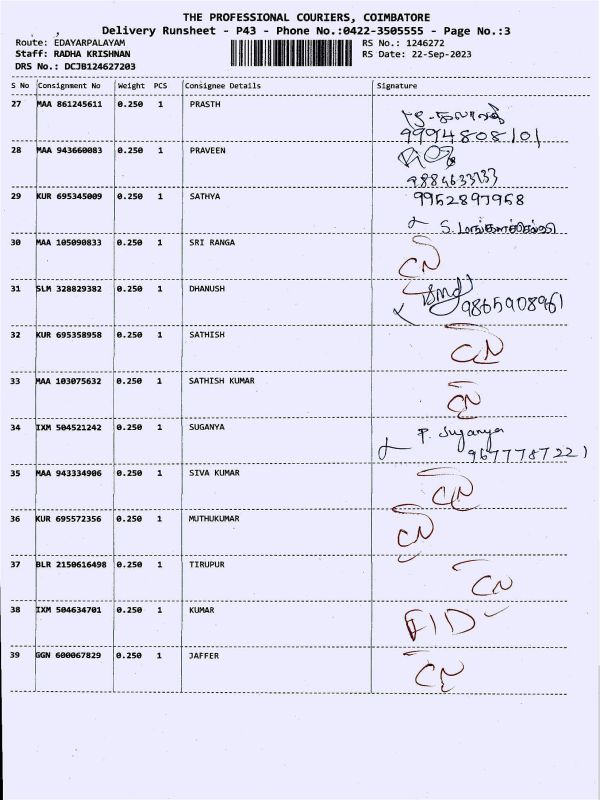 THE PROFESSIONAL COURIERS, COIMBATORE
Delivery Runsheet - P43 - Phone No.:0422-3505555 - Page No.:3
Route: EDAYARPALAYAM RS No.: 1246272
Staff: RADHA KRISHNAN RS Date: 22-Sep-2023
DRS No.: DCJB124627203
S No Consignment No Weight PCS Consignee Details Signature
27 MAA 861245611 0.250 1 PRASTH
9994808101
28 MAA 943660083 0.250 1 PRAVEEN
9884633133
29 KUR 695345009 0.250 1 SATHYA 9952897958
30 MAA 105090833 0.250 1 SRI RANGA
31 SLM 328829382 0.250 1 DHANUSH
9865908961
32 KUR 695358958 0.250 1 SATHISH
33 MAA 103075632 0.250 1 SATHISH KUMAR
34 IXM 504521242 0.250 1 SUGANYA P. Suganya
9677787221
35 MAA 943334906 0.250 1 SIVA KUMAR
36 KUR 695572356 0.250 1 MUTHUKUMAR
37 BLR 2150616498 0.250 1 TIRUPUR
38 IXM 504634701 0.250 1 KUMAR
39 GGN 600067829 0.250 1 JAFFER